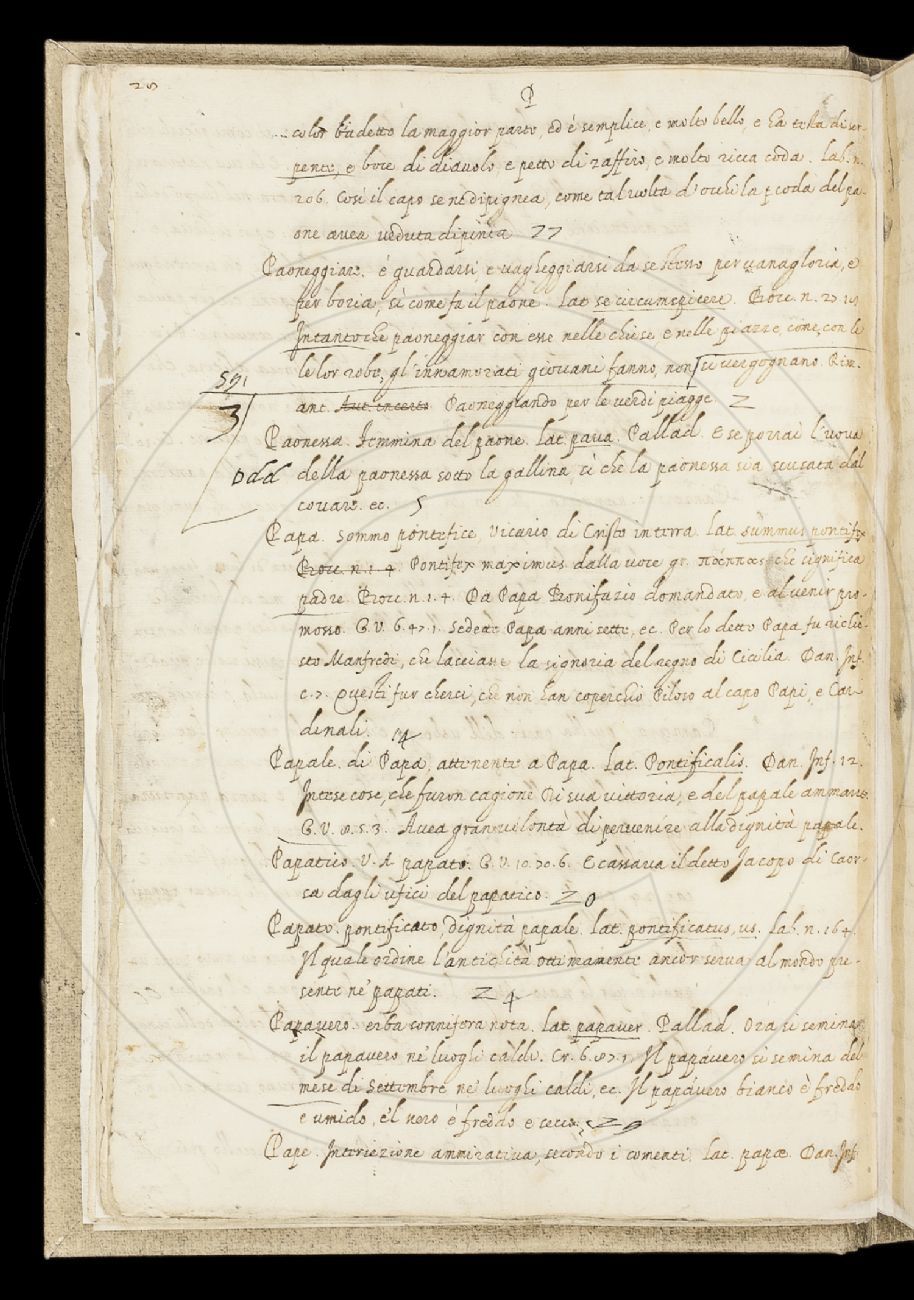 28
P
color badetto la maggior parte, ed è semplice, e molto bello, e ha testa di ser-
pente, e boce di diavolo, e petto di zaffiro, e molto ricca coda. Lab. n.
206. Così il capo se ne dipignea, come talvolta d'occhi la coda del pa-
one avea veduta dipinta 77
Paoneggiare. è guardarsi e vagheggiarsi da se stesso per vanagloria, e
per boria, sì come fa il paone. Lat. se circumspicere. Bocc. n. 27.
Intantoche paoneggiar con esse nelle chiese e nelle piazze, come con le
le lor robe, gl'innamorati giovani fanno, non si vergognano. Rim.
591
ant. Aut. incerto Paoneggiando per le verdi piagge 2
3
Paonessa. Femmina del paone. Lat. pava. Pallad. E se porrai l'uova
Odd della paonessa sotto la gallina, sì che la paonessa sia scusata dal
covare. ec. 5
Papa. Sommo pontefice, Vicario di Cristo in terra. Lat. summus pontifex
Bocc. n. 1. 4. Pontifex maximus dalla voce gr. πάππας che significa
padre. Bocc. n. 1. 4. Da Papa Bonifazio domandato, e al venir pro-
mosso. G. V. 6. 47. 1. Sedea Papa anni sette, ec. Per lo detto Papa fu richie-
sto Manfredi, che lasciasse la signoria del regno di Cicilia. Dan. Inf.
c. 7. Questi fur cherci, che non han coperchio Piloso al capo Papi, e Car-
dinali. 14
Papale. di Papa, attenente a Papa. Lat. Pontificalis. Dan. Inf. 12.
Intese cose, che furon cagione Di sua vittoria, e del papale ammanto.
G. V. 8. 5. 3. Avea gran volontà di pervenire alla dignità papale.
Papatico. V. A. papato. G. V. 10. 70. 6. E cassava il detto Jacopo di Caor-
sa dagli ufici del papatico. 20
Papato. pontificato, dignità papale. Lat. pontificatus, us. Lab. n. 164.
Il quale ordine l'antichità ottimamente ancor serva al mondo pre-
sente ne' papati. 24
Papavero. erba sonnifera nota. Lat. papaver. Pallad. Ora si semina
il papavero ne' luogi caldi. Cr. 6. 87. 1. Il papavero si semina del
mese di Settembre ne' luoghi caldi, ec. Il papavero bianco è freddo
e umido, e'l nero è freddo e secco. 29
Pape. Interiezione ammirativa, secondo i comenti. Lat. papæ. Dan. Inf.